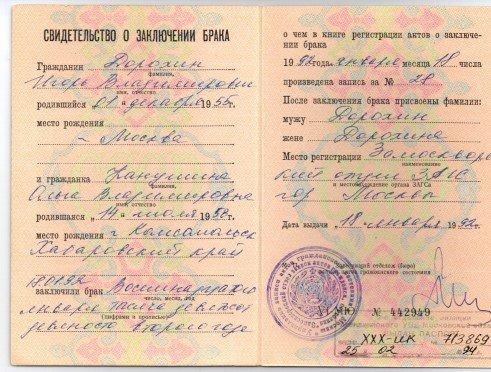 СВИДЕТЕЛЬСТВО О ЗАКЛЮЧЕНИИ БРАКА
Гражданин Дорохин
фамилия,
Игорь Владимирович
имя, отчество
родившийся 01 декабря 1953г.
место рождения
г. Москва
и гражданка
фамилия,
Ольга Владимировна
имя, отчество
родившаяся 14 июля 195 г.
место рождения г. Комсомольск
Хабаровский край
18.01.92
заключили брак Восемнадцатого
число, месяц, год
января тысяча девятьсот
(цифрами и прописью)
девяносто второго года
о чем в книге регистрации актов о заключе-
нии брака
1992 года января месяца 18 числа
произведена запись за № 28
После заключения брака присвоены фамилии:
мужу Дорохин
жене Дорохина
Место регистрации Замоскворец
наименование
кий отдел ЗАГС
и местонахождение органа ЗАГСа
гор Москвы
Дата выдачи 18 января 1992 г.
отделом (бюро)
актов гражданского состояния
№ 442949
XXX-ИК 713869
25 02 94